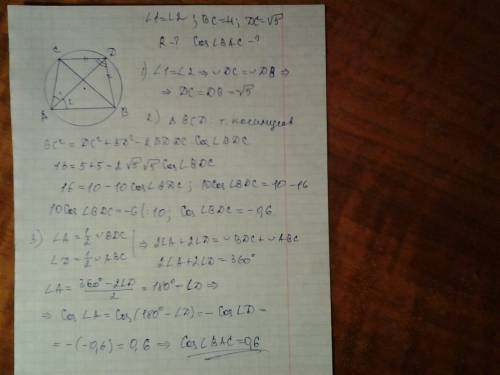 ∠1=∠2 ; BC=4; DC=√5
R-? Cos∠BAC-?
C
D
A
B
1
2
1) ∠1=∠2 ⇒ ◡DC=◡DB ⇒
⇒ DC=DB=√5
2) Δ BCD т. косинусов
BC²=DC²+BD²-2BD·DC·Cos∠BDC
16=5+5-2√5√5Cos∠BDC
16=10-10Cos∠BDC; 10Cos∠BDC=10-16
10Cos∠BDC=-6|:10; Cos∠BDC=-0,6
3) ∠A=½◡BDC
∠D=½◡ABC
⇒ 2∠A+2∠D=◡BDC+◡ABC
2∠A+2∠D=360°
∠A=(360°-2∠D)/2=180°-∠D ⇒
⇒ Cos∠A=Cos(180°-∠D)=-Cos∠D=
=-(-0,6)=0,6 ⇒ Cos∠BAC=0,6